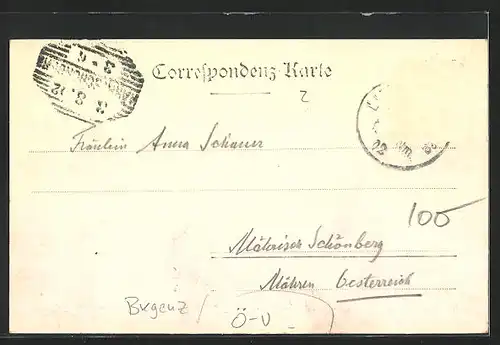 Correspondenz-Karte
2
3-6
3.8.12
Fräulein Anna Schauer
100
Mährisch Schönberg
Mähren Oesterreich
Bregenz /
Ö-U